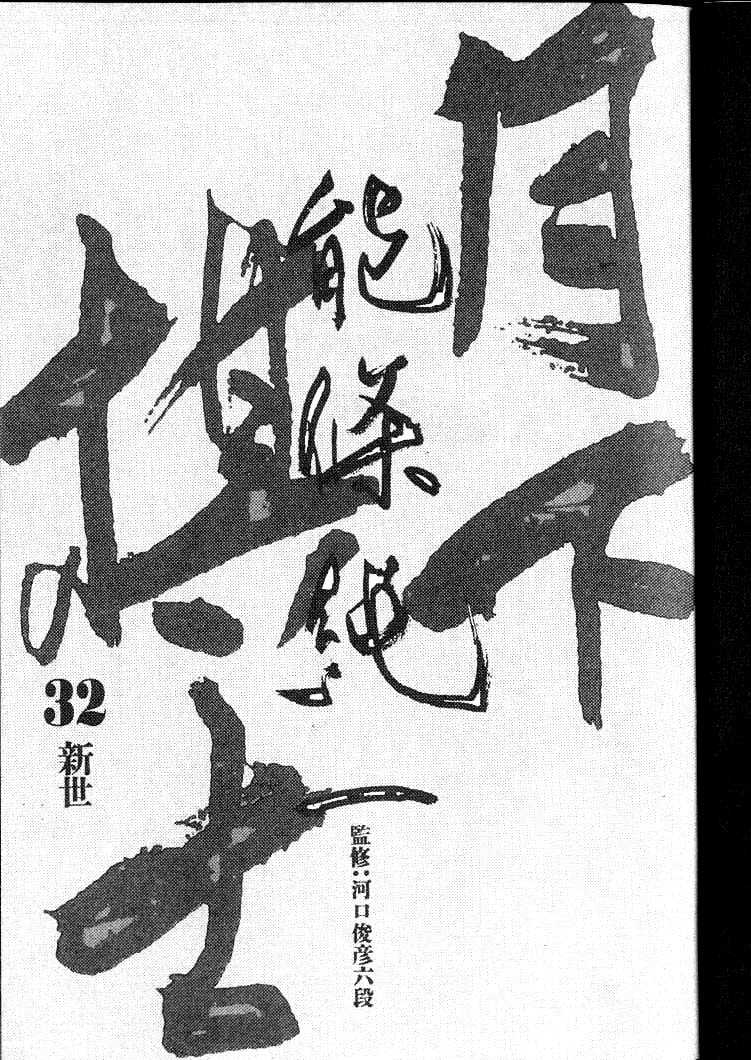 月下の棋士
能條純一
32
新世
監修:河口俊彦六段